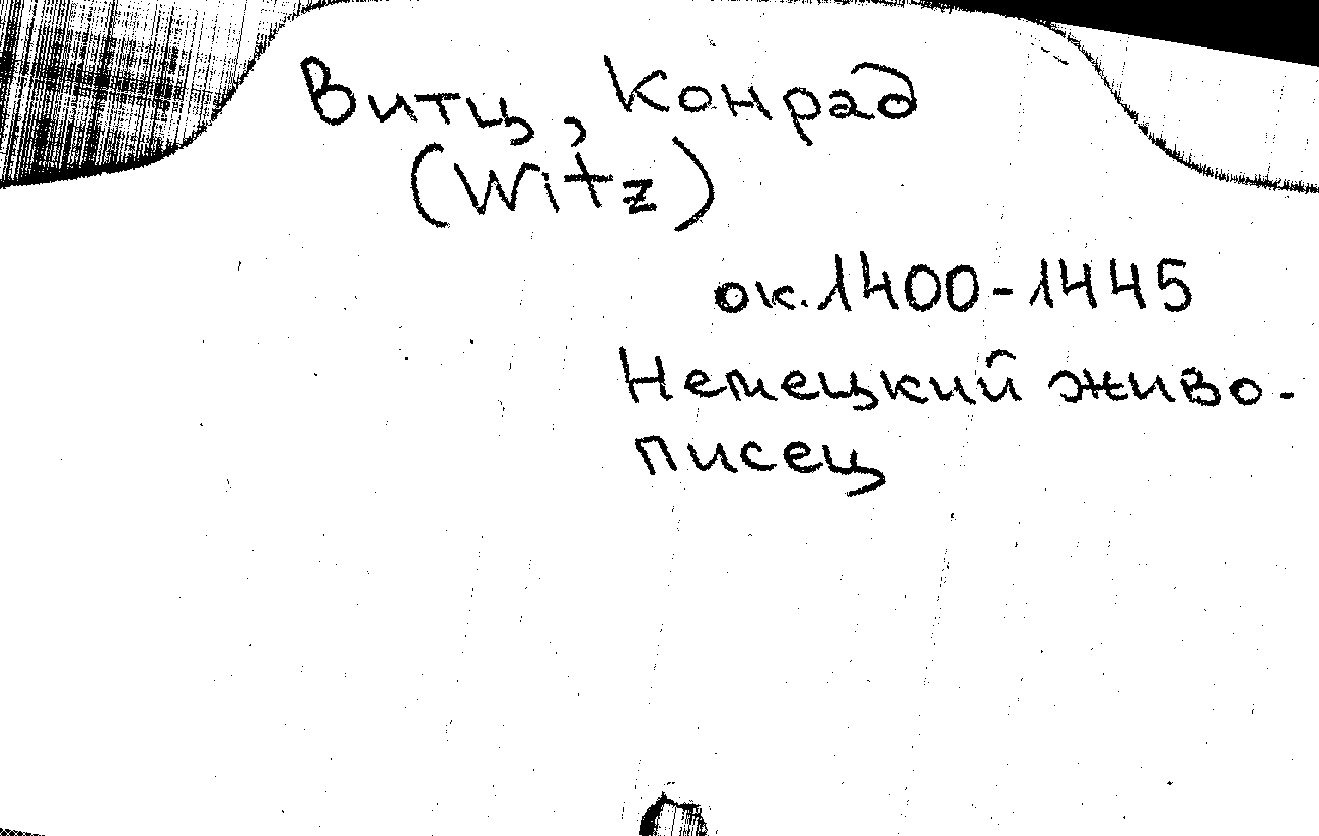 Витц, Конрад
(Witz)
ок. 1400-1445
Немецкий живо-
писец